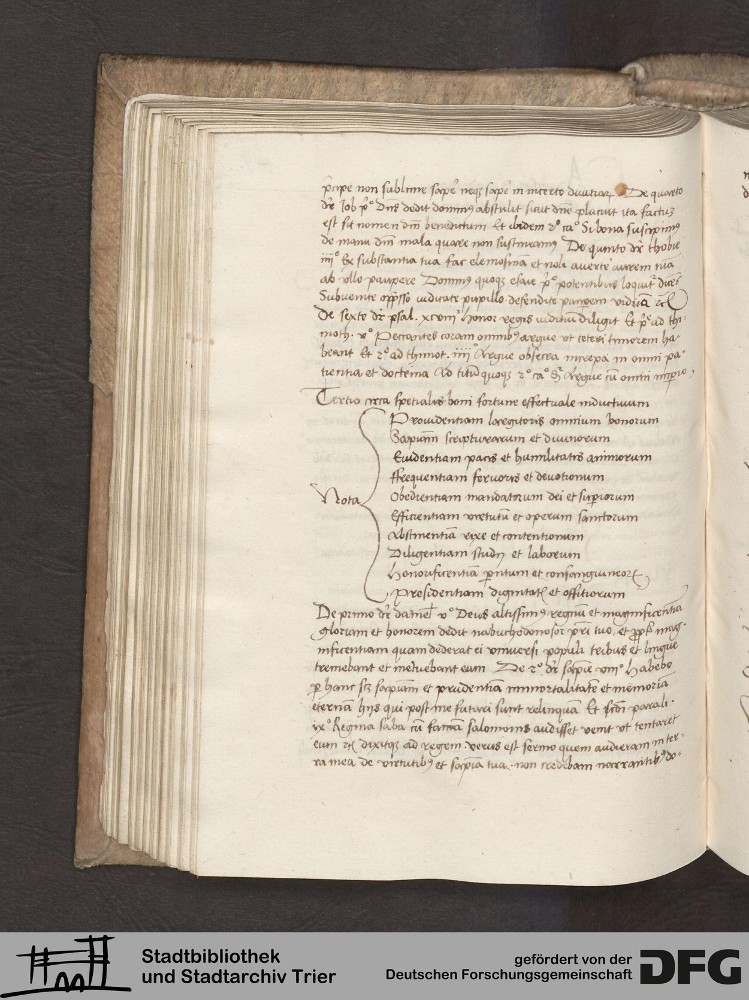 p̄cipe non sublime sapē neqꝫ sapē in incerto diuitiaꝝ De quarto
dr̄ Job p̊ Dn̄s dedit dominꝰ abstulit sicut dn̄o placuit ita factuꝫ
est sit nomen dn̄i benedictum Et ibidem 2º ca° Si bona suscipimꝰ
de manu dn̄i mala quare non sustineamꝰ De quinto dr̄ thobie
iiij° Ex substantia tua fac elemosinā et noli auertē
ab vllo paupere Dominꝰ quoqꝫ esaie p̊ potentibus loquit̄
Subuenite opp̄sso iudicate pupillo defendite viduā
De sexto dr̄ psal. xcviij° Honor regis iudiciū diligit Et p̊ ad thi-
moth. v° Peccantes coram omnibꝰ argue vt ceteri timorem ha-
beant Et 2° ad thimot. iiij° Argue obsecra increpa in omni pa-
tientia et doctrina Ad titū quoqꝫ 2° ca° Argue cū omni impio
Tertio circa spetialis boni fortune effectuale inductiuum
Nota
Prouidentiam laregitoris omnium bonorum
Sapiam̄ scripturarum et diuinorum
Euidentiam pacis et humilitatis animorum
ffrequentiam feruoris et deuotionum
Obedientiam mandatorum dei et supiorum
Efficientiam virtutū et operum sanctorum
Abstinentiā rixe et contentionum
Diligentiam studij et laborum
Honorificentiā parentum et consanguineoꝝ
Presidentiam dignitatꝭ et offitiorum
De primo dr̄ daniel v° Deus altissimꝰ regnū et magnificentiā
gloriam et honorem dedit nabuchodonosor pr̄i tuo, et ꝓpt̄ mag-
nificentiam quam dederat ei vniuersi populi tribus et lingue
tremebant et metuebant eum De 2° dr̄ sapiē viij° Habebo
ꝑ hanc scꝫ sapiam̄ et prudentiā immortalitatē et memoriā
eternā hijs qui post me futuri sunt relinquā Et scd̄i paral.
ix° Regina saba cū famā salomonis audisset venit vt tentaret
eum dixitqꝫ ad regem verus est sermo quem audieram in ter-
ra mea de virtutibꝰ et sapīa tua. non credebam narrantibꝰ do-
Stadtbibliothek
und Stadtarchiv Trier
gefördert von der
Deutschen Forschungsgemeinschaft
DFG